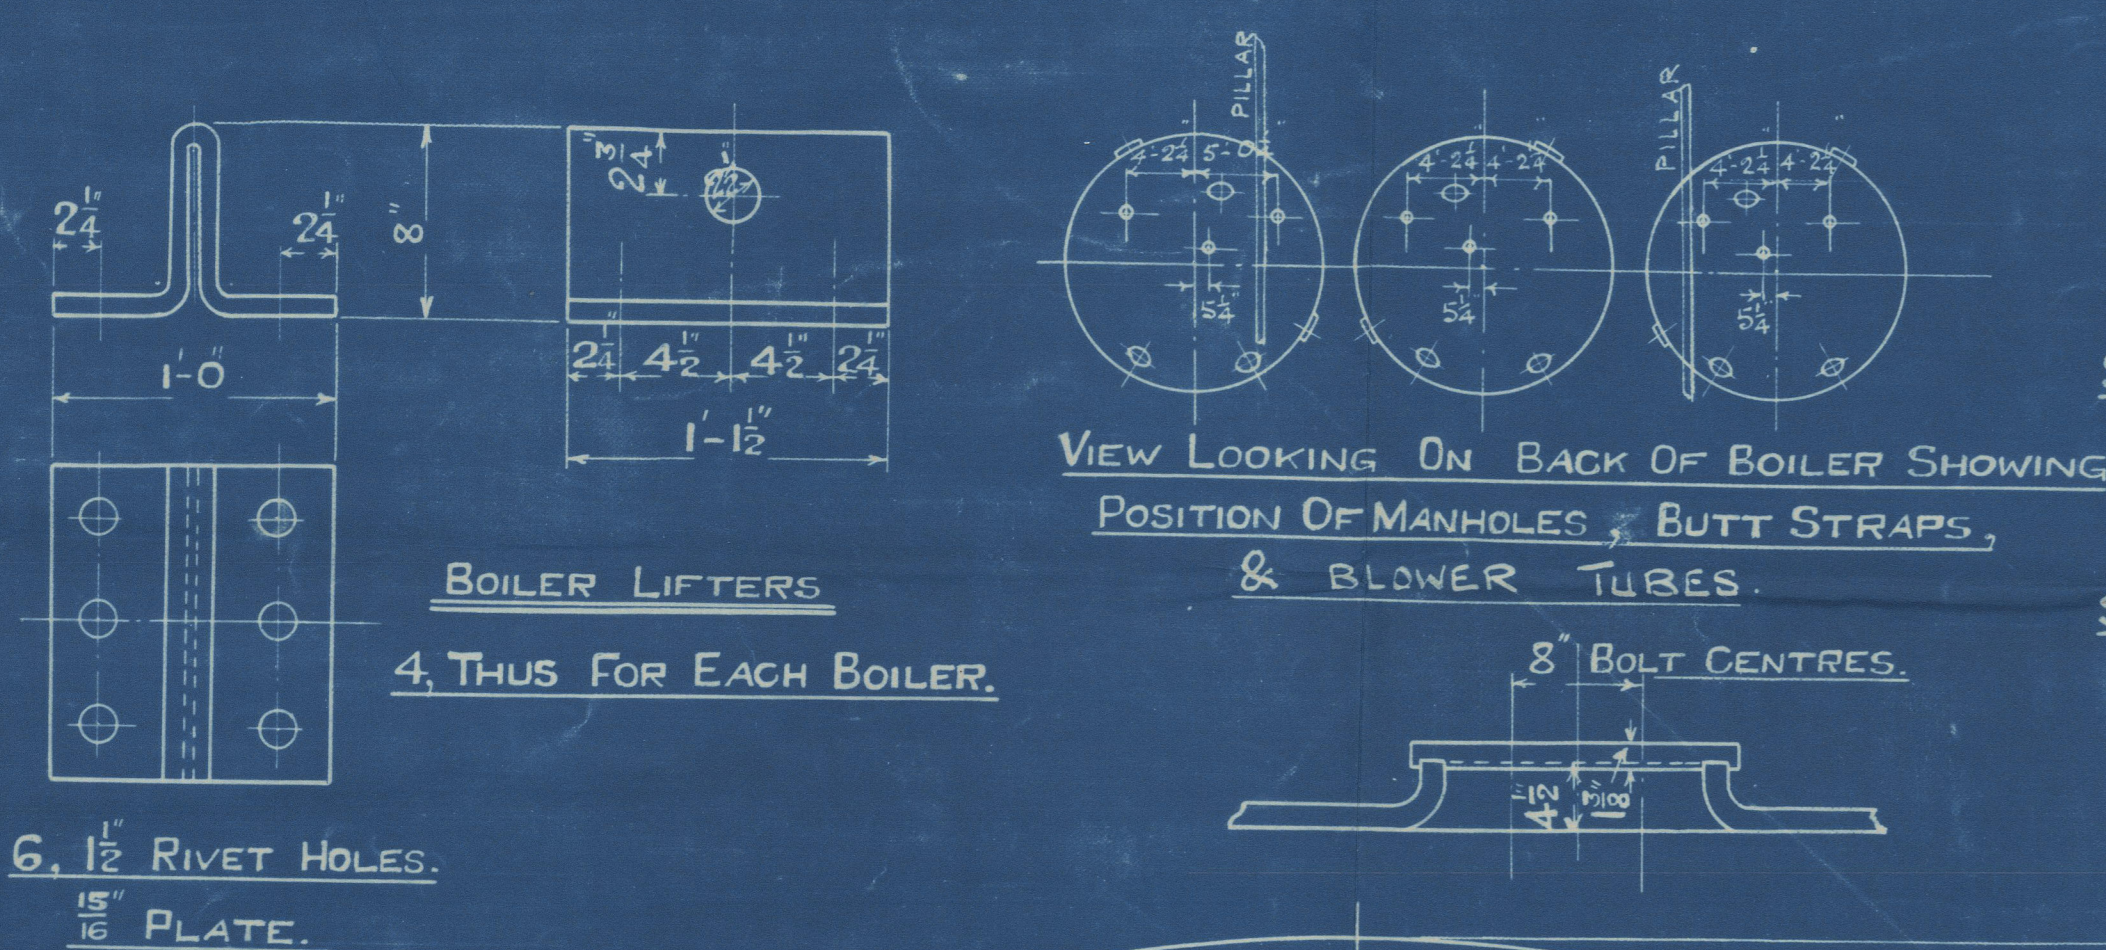 2 1/4"
2 1/4"
8"
1'-0"
2 3/4"
2 1/4" 4 1/2" 4 1/2" 2 1/4"
1'-1 1/2"
BOILER LIFTERS
4, THUS FOR EACH BOILER.
6, 1 1/2" RIVET HOLES.
15/16" PLATE.
PILLAR
PILLAR
4'-2 1/4" 4'-2 1/4" 4'-2 1/4" 4'-2 1/4" 4'-2 1/4"
5 1/4" 5 1/4" 5 1/4"
VIEW LOOKING ON BACK OF BOILER SHOWING
POSITION OF MANHOLES, BUTT STRAPS,
& BLOWER TUBES.
8" BOLT CENTRES.
4 1/2" 1 3/8"